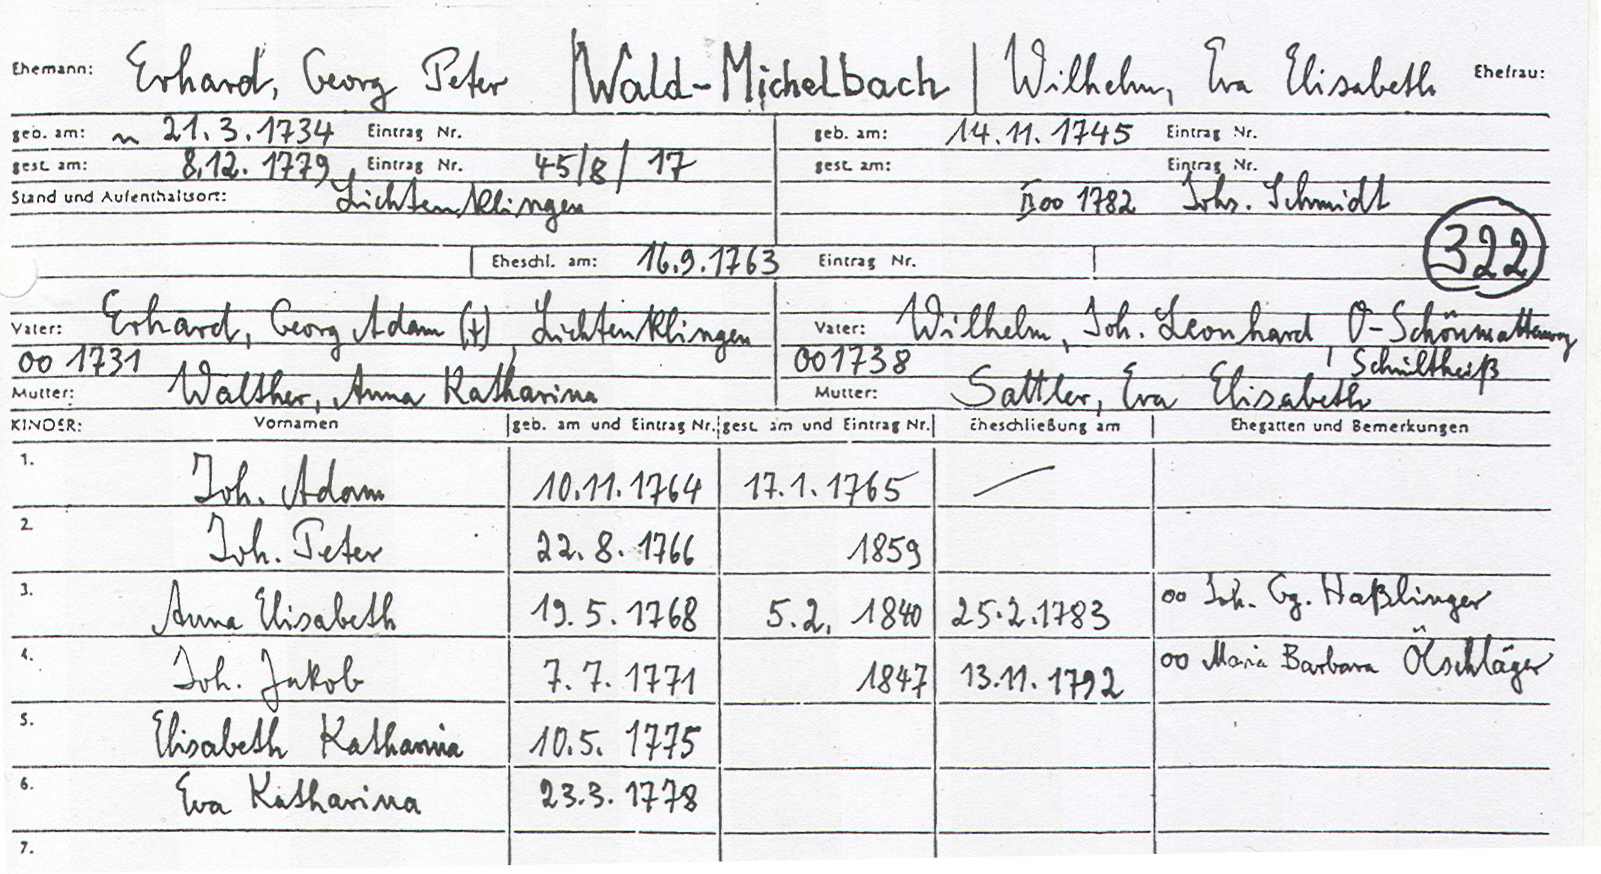 Ehemann: Erhard, Georg Peter | Wald-Michelbach | Wilhelm, Eva Elisabeth Ehefrau:
geb. am: ~ 21.3.1734 Eintrag Nr. geb. am: 14.11.1745 Eintrag Nr.
gest. am: 8.12.1779 Eintrag Nr. 45/8/17 gest. am: Eintrag Nr.
Stand und Aufenthaltsort: Lichtenklingen II oo 1782 Johs. Schmidt
322
Eheschl. am: 16.9.1763 Eintrag Nr.
Vater: Erhard, Georg Adam (+), Lichtenklingen Vater: Wilhelm, Joh. Leonhard, O-Schönmattenwag
oo 1731 oo 1738 Schultheiß
Mutter: Walther, Anna Katharina Mutter: Sattler, Eva Elisabeth
KINDER: Vornamen geb. am und Eintrag Nr. gest. am und Eintrag Nr. Eheschließung am Ehegatten und Bemerkungen
1. Joh. Adam 10.11.1764 17.1.1765 —
2. Joh. Peter 22.8.1766 1859
3. Anna Elisabeth 19.5.1768 5.2.1840 25.2.1783 oo Joh. Gg. Haßlinger
4. Joh. Jakob 7.7.1771 1847 13.11.1792 oo Maria Barbara Ölschläger
5. Elisabeth Katharina 10.5.1775
6. Eva Katharina 23.3.1778
7.